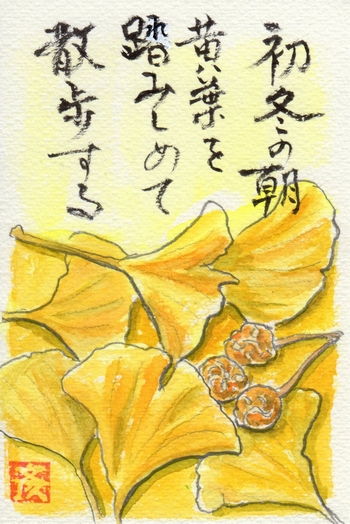 初冬の朝
黄葉を
踏みしめて
散歩する